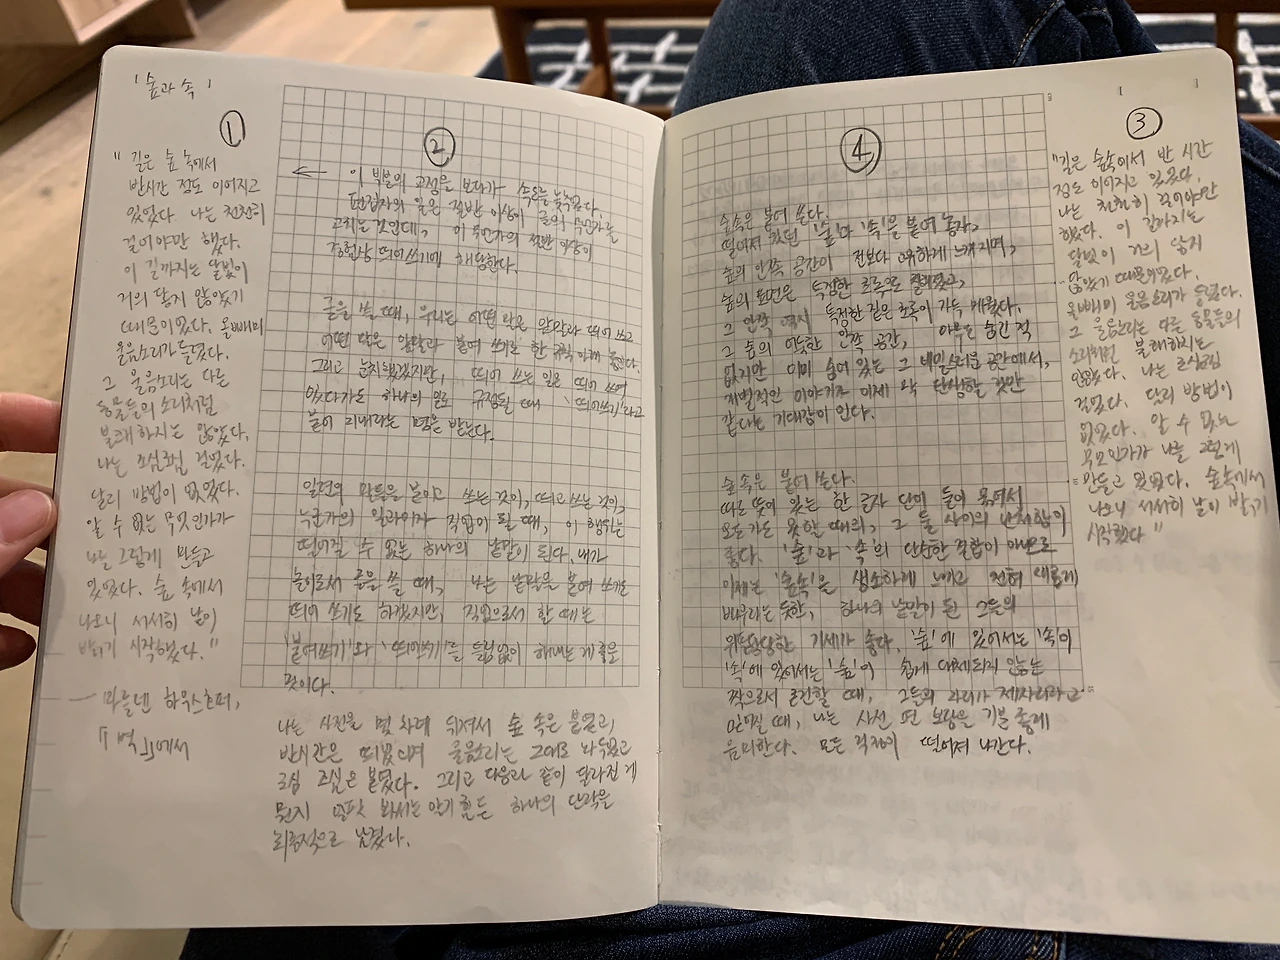 '숲과 속'
①
"길은 숲 속에서
반시간 정도 이어지고
있었다. 나는 천천히
걸어야만 했다.
이 길까지는 달빛이
거의 닿지 않았기
때문이었다. 올빼미
울음소리가 들렸다.
그 울음소리는 다른
동물들의 소리처럼
불쾌하지는 않았다.
나는 조심조심 걸었다.
달리 방법이 없었다.
알 수 없는 무엇인가가
나를 그렇게 만들고
있었다. 숲 속에서
나오니 서서히 날이
밝기 시작했다."
— 마를렌 하우스호퍼,
『벽』에서
②
← 이 부분의 교정을 보다가 속도를 늦추었다.
편집자의 일은 절반 이상이 글의 무언가를
고치는 것인데, 이 무언가의 절반 이상이
경험상 띄어쓰기에 해당한다.
글을 쓸 때, 우리는 어떤 말은 앞말과 띄어 쓰고
어떤 말은 앞말과 붙여 쓰기로 한 규칙 아래 놓인다.
그리고 눈치챘겠지만, 띄어 쓰는 일은 띄어 쓰여
있다가도 하나의 일로 규정될 때 '띄어쓰기'라고
붙어 지내라는 명을 받는다.
일련의 말들을 붙이고 쓰는 것이, 띄고 쓰는 것이,
누군가의 일과이자 직업이 될 때, 이 행위는
떨어질 수 없는 하나의 낱말이 된다. 내가
놀이로서 글을 쓸 때, 나는 낱말을 붙여 쓰기도
띄어 쓰기도 하겠지만, 직업으로서 할 때는
'붙여쓰기'와 '띄어쓰기'를 틀림없이 해내는 게 좋을
것이다.
나는 사전을 몇 차례 뒤져서 숲 속은 붙였고,
반시간은 띄었으며 울음소리는 그대로 놔두었고
조심 조심은 붙였다. 그리고 다음과 같이 달라진 게
뭔지 얼핏 봐서는 알기 힘든 하나의 단락을
최종적으로 남겼다.
③
"길은 숲속에서 반 시간
정도 이어지고 있었다.
나는 천천히 걸어야만
했다. 이 길까지는
달빛이 거의 닿지
않았기 때문이었다.
올빼미 울음소리가 들렸다.
그 울음소리는 다른 동물들의
소리처럼 불쾌하지는
않았다. 나는 조심조심
걸었다. 달리 방법이
없었다. 알 수 없는
무엇인가가 나를 그렇게
만들고 있었다. 숲속에서
나오니 서서히 날이 밝기
시작했다."
④
숲속은 붙여 쓴다.
떨어져 있던 '숲'과 '속'을 붙여 놓자,
숲의 안쪽 공간이 전보다 아늑하게 느껴지며,
숲의 표면은 특정한 초록으로
그 안쪽 역시 특정한 짙은 초록이 가득 메웠다.
그 숲의 어둑한 안쪽 공간, 아무도 숨긴 적
없지만 이미 숨어 있는 그 비밀스러운 공간에서,
개별적인 이야기가 이제 막 탄생할 것만
같다는 기대감이 인다.
숲속은 붙여 쓴다.
따로 놓여 있는 한 글자 단어 둘이 붙여서
오도 가도 못할 때의, 그 둘 사이의
좋다. '숲'과 '속'의 단순한 결합이 아니므로
이제는 '숲속'을 생소하게 느끼고 전혀 새롭게
배우라는 듯한, 하나의 낱말이 된 그들의
위풍당당한 기세가 좋다. '숲'에 있어서는 '속'이
'속'에 있어서는 '숲'이 쉽게 대체되지 않는
짝으로서 굳건할 때, 그들의 자리가 제자리라고
믿어질 때, 나는 사전 편 보람을 기분 좋게
음미한다. 모든 걱정이 떨어져 나간다.